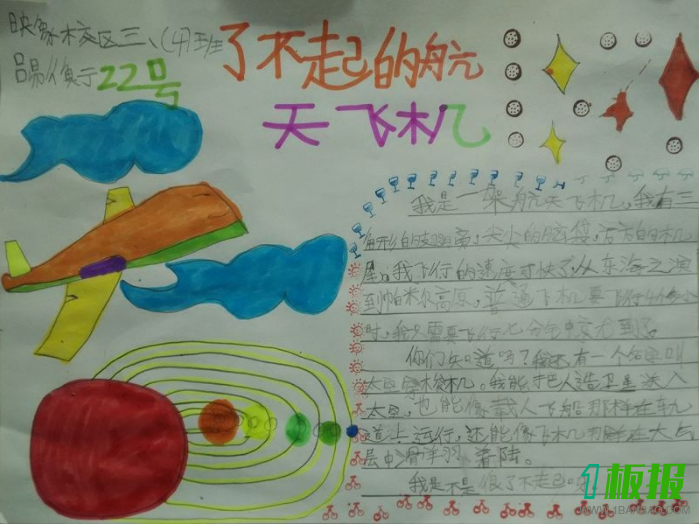 映象校区三、(4)班
22号
了不起的航
天飞机
我是一架航天飞机，我有三
角形的翅膀，尖尖的脑袋，方方的机
尾。我飞行的速度可快了，从东海之滨
到帕米尔高原，普通飞机要飞行4个小
时，我只需要飞行七分钟就到了。
你们知道吗？我还有一个名字叫
太空梭机。我能把人造卫星送入
太空，也能像载人飞船那样在轨
道上运行，还能像飞机那样在大气
层中滑翔着陆。
我是不是很了不起
1板报
WWW.1BANBAO.COM